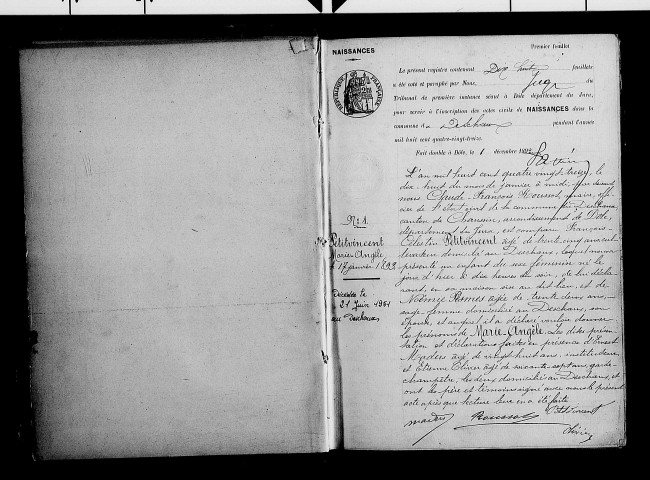 NAISSANCES
Premier feuillet
Le présent registre contenant Dix huit feuillets
a été coté et paraphé par Nous, Juge du
Tribunal de première instance séant à Dôle département du Jura,
pour servir à l'inscription des actes civils de NAISSANCES dans la
commune d Deschaux pendant l'année
mil huit cent quatre-vingt-treize.
Fait double à Dôle, le 1 décembre 1892
RÉPUBLIQUE FRANÇAISE
N° 1.
Petitvincent
Marie Angèle
17 janvier 1893
Décédée le
21 Juin 1961
au Deschaux
L'an mil huit cent quatre vingt treize, le
dix-huit du mois de janvier à midi, par devant
nous Claude-François Roussot, maire, offi-
cier de l'état civil de la commune de Deschaux
canton de Chaussin, arrondissement de Dôle,
département du Jura, est comparu François-
Célestin Petitvincent âgé de trente cinq ans cul-
tivateur domicilié au Deschaux, lequel nous a
présenté un enfant du sexe féminin né le
jour d'hier à dix heures du soir, de lui décla-
rant, en sa maison sise au dit lieu, et de
Noémie âgée de trente deux ans,
sage femme domiciliée au Deschaux, son
épouse, et auquel il a déclaré vouloir donner
les prénoms de Marie-Angèle. Les dites présen-
tation et déclaration faites en présence d'Ernest
âgé de vingt huit ans, instituteur,
et Etienne âgé de soixante sept ans, garde-
champêtre, les deux domiciliés au Deschaux, et
ont les père et témoins signé avec nous le présent
acte après que lecture leur en a été faite
Petitvincent
Roussot